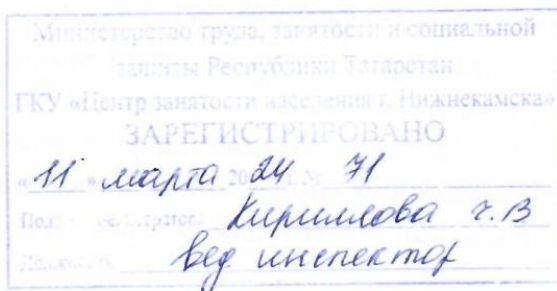 Министерство труда, занятости и социальной
защиты Республики Татарстан
ГКУ «Центр занятости населения г. Нижнекамска»
ЗАРЕГИСТРИРОВАНО
«11» марта 2024 г. № 71
Кириллова г.В
Должность вед инспектор